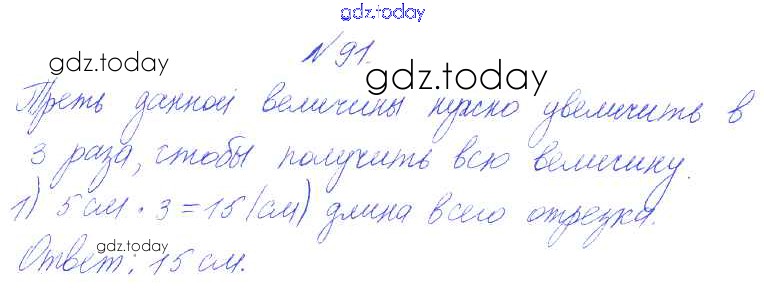 gdz.today
№91.
gdz.today
gdz.today
Треть данной величины нужно увеличить в
3 раза, чтобы получить всю величину.
1) 5 см · 3 = 15 (см) длина всего отрезка.
gdz.today
Ответ: 15 см.